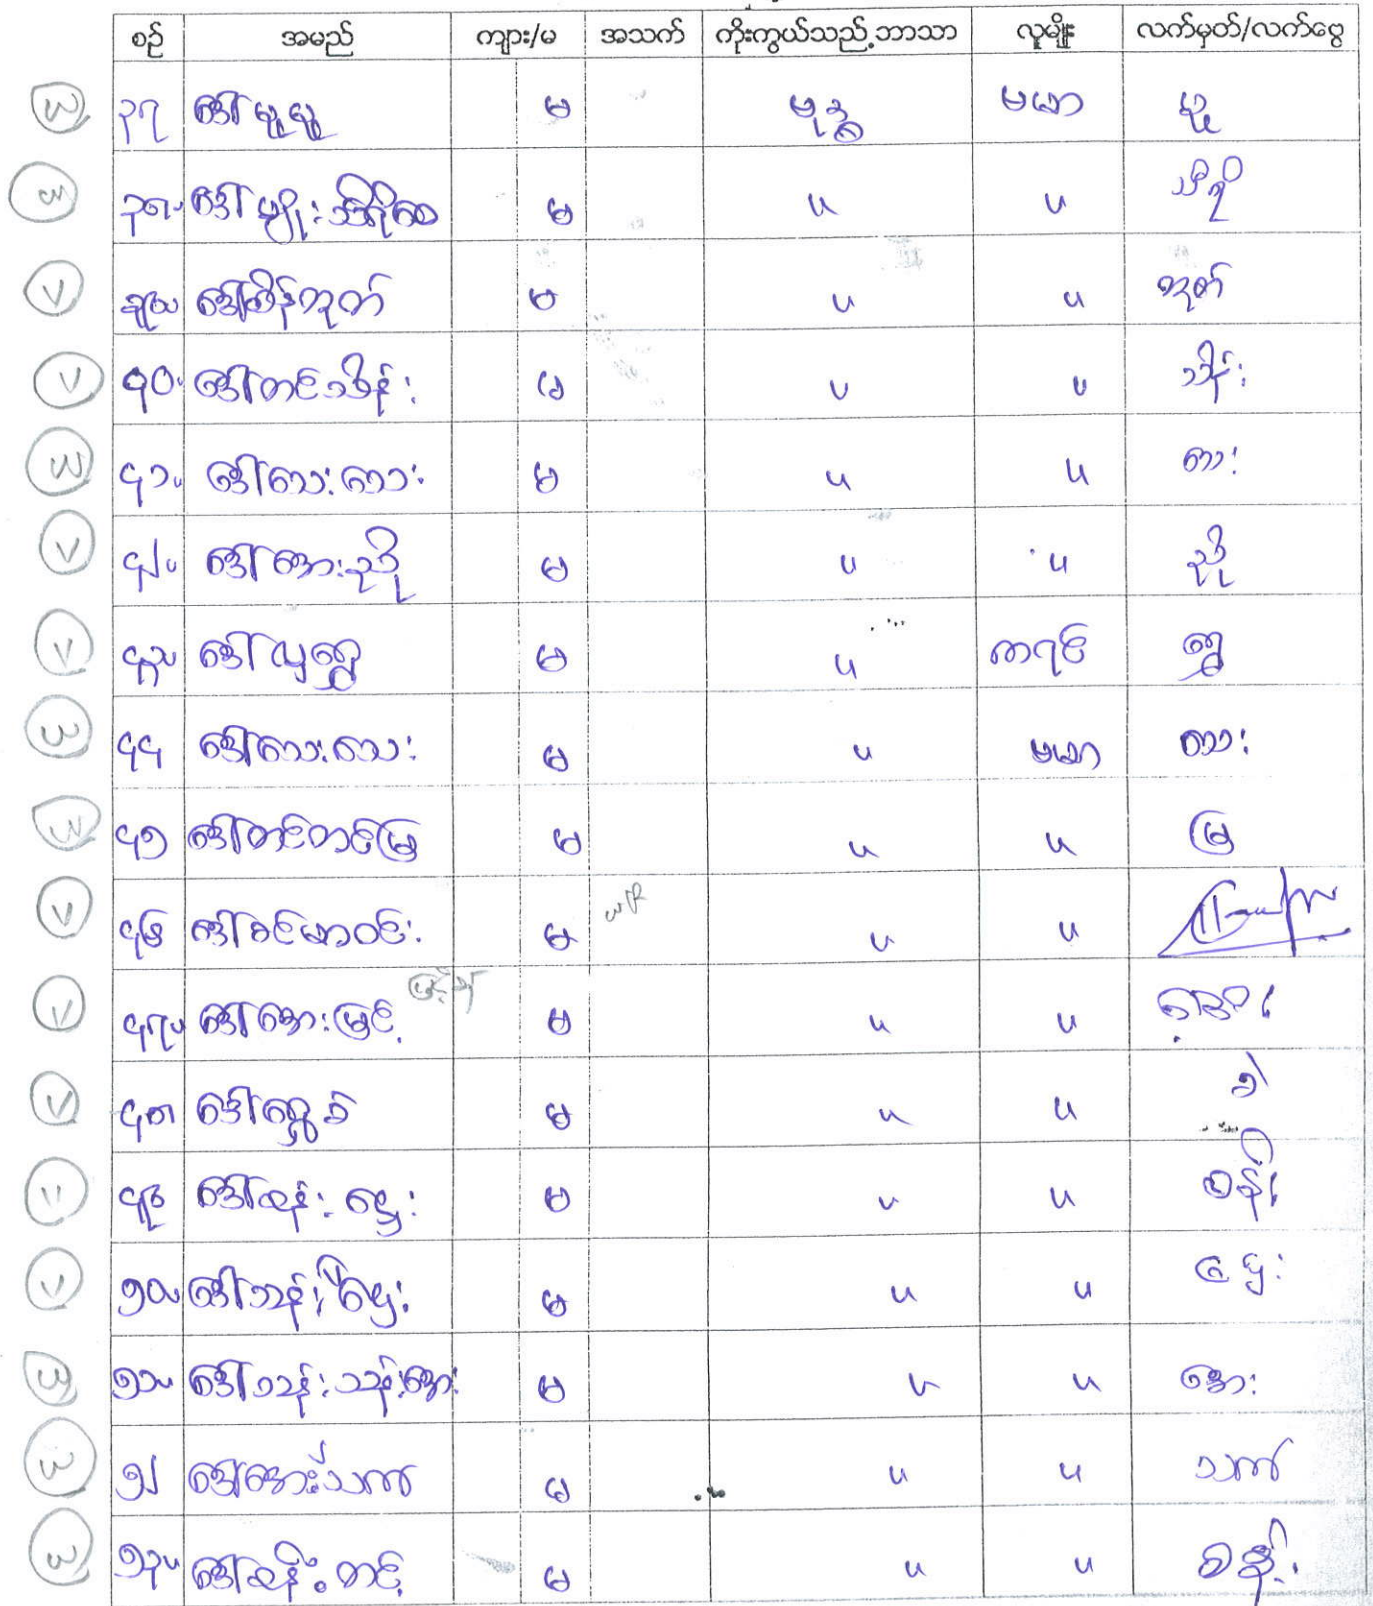 စဉ် အမည် ကျား/မ အသက် ကိုးကွယ်သည့်ဘာသာ လူမျိုး လက်မှတ်/လက်ဗွေ
၃၇ ဒေါ်မူမူ မ ဗုဒ္ဓ ဗမာ မူ
၃၈. ဒေါ်မျိုးသီရိ မ " " သီရိ
၃၉. ဒေါ်စိန်ကုတ် မ " " ကုတ်
၄၀. ဒေါ်တင်သိန်း မ " " သိန်း
၄၁. ဒေါ်လေးလေး မ " " လေး
၄၂. ဒေါ်အေးညို မ " " ညို
၄၃. ဒေါ်လှရွှေ မ " ကရင် ရွှေ
၄၄ ဒေါ်လေးလေး မ " ဗမာ လေး
၄၅ ဒေါ်တင်တင်မြ မ " " မြ
၄၆ ဒေါ်ခင်မာဝင်း မ " "
၄၇. ဒေါ်အေးမြင့် မ " "
၄၈ ဒေါ်ရွှေခင် မ " "
၄၉ ဒေါ်စန်းဌေး မ " " စန်း
၅၀. ဒေါ်သန်းဌေး မ " " ဌေး
၅၁. ဒေါ်သန်းသန်းအေး မ " " အေး
၅၂ ဒေါ်အေးသက် မ " " သက်
၅၃. ဒေါ်စန်းတင့် မ " " စန်း